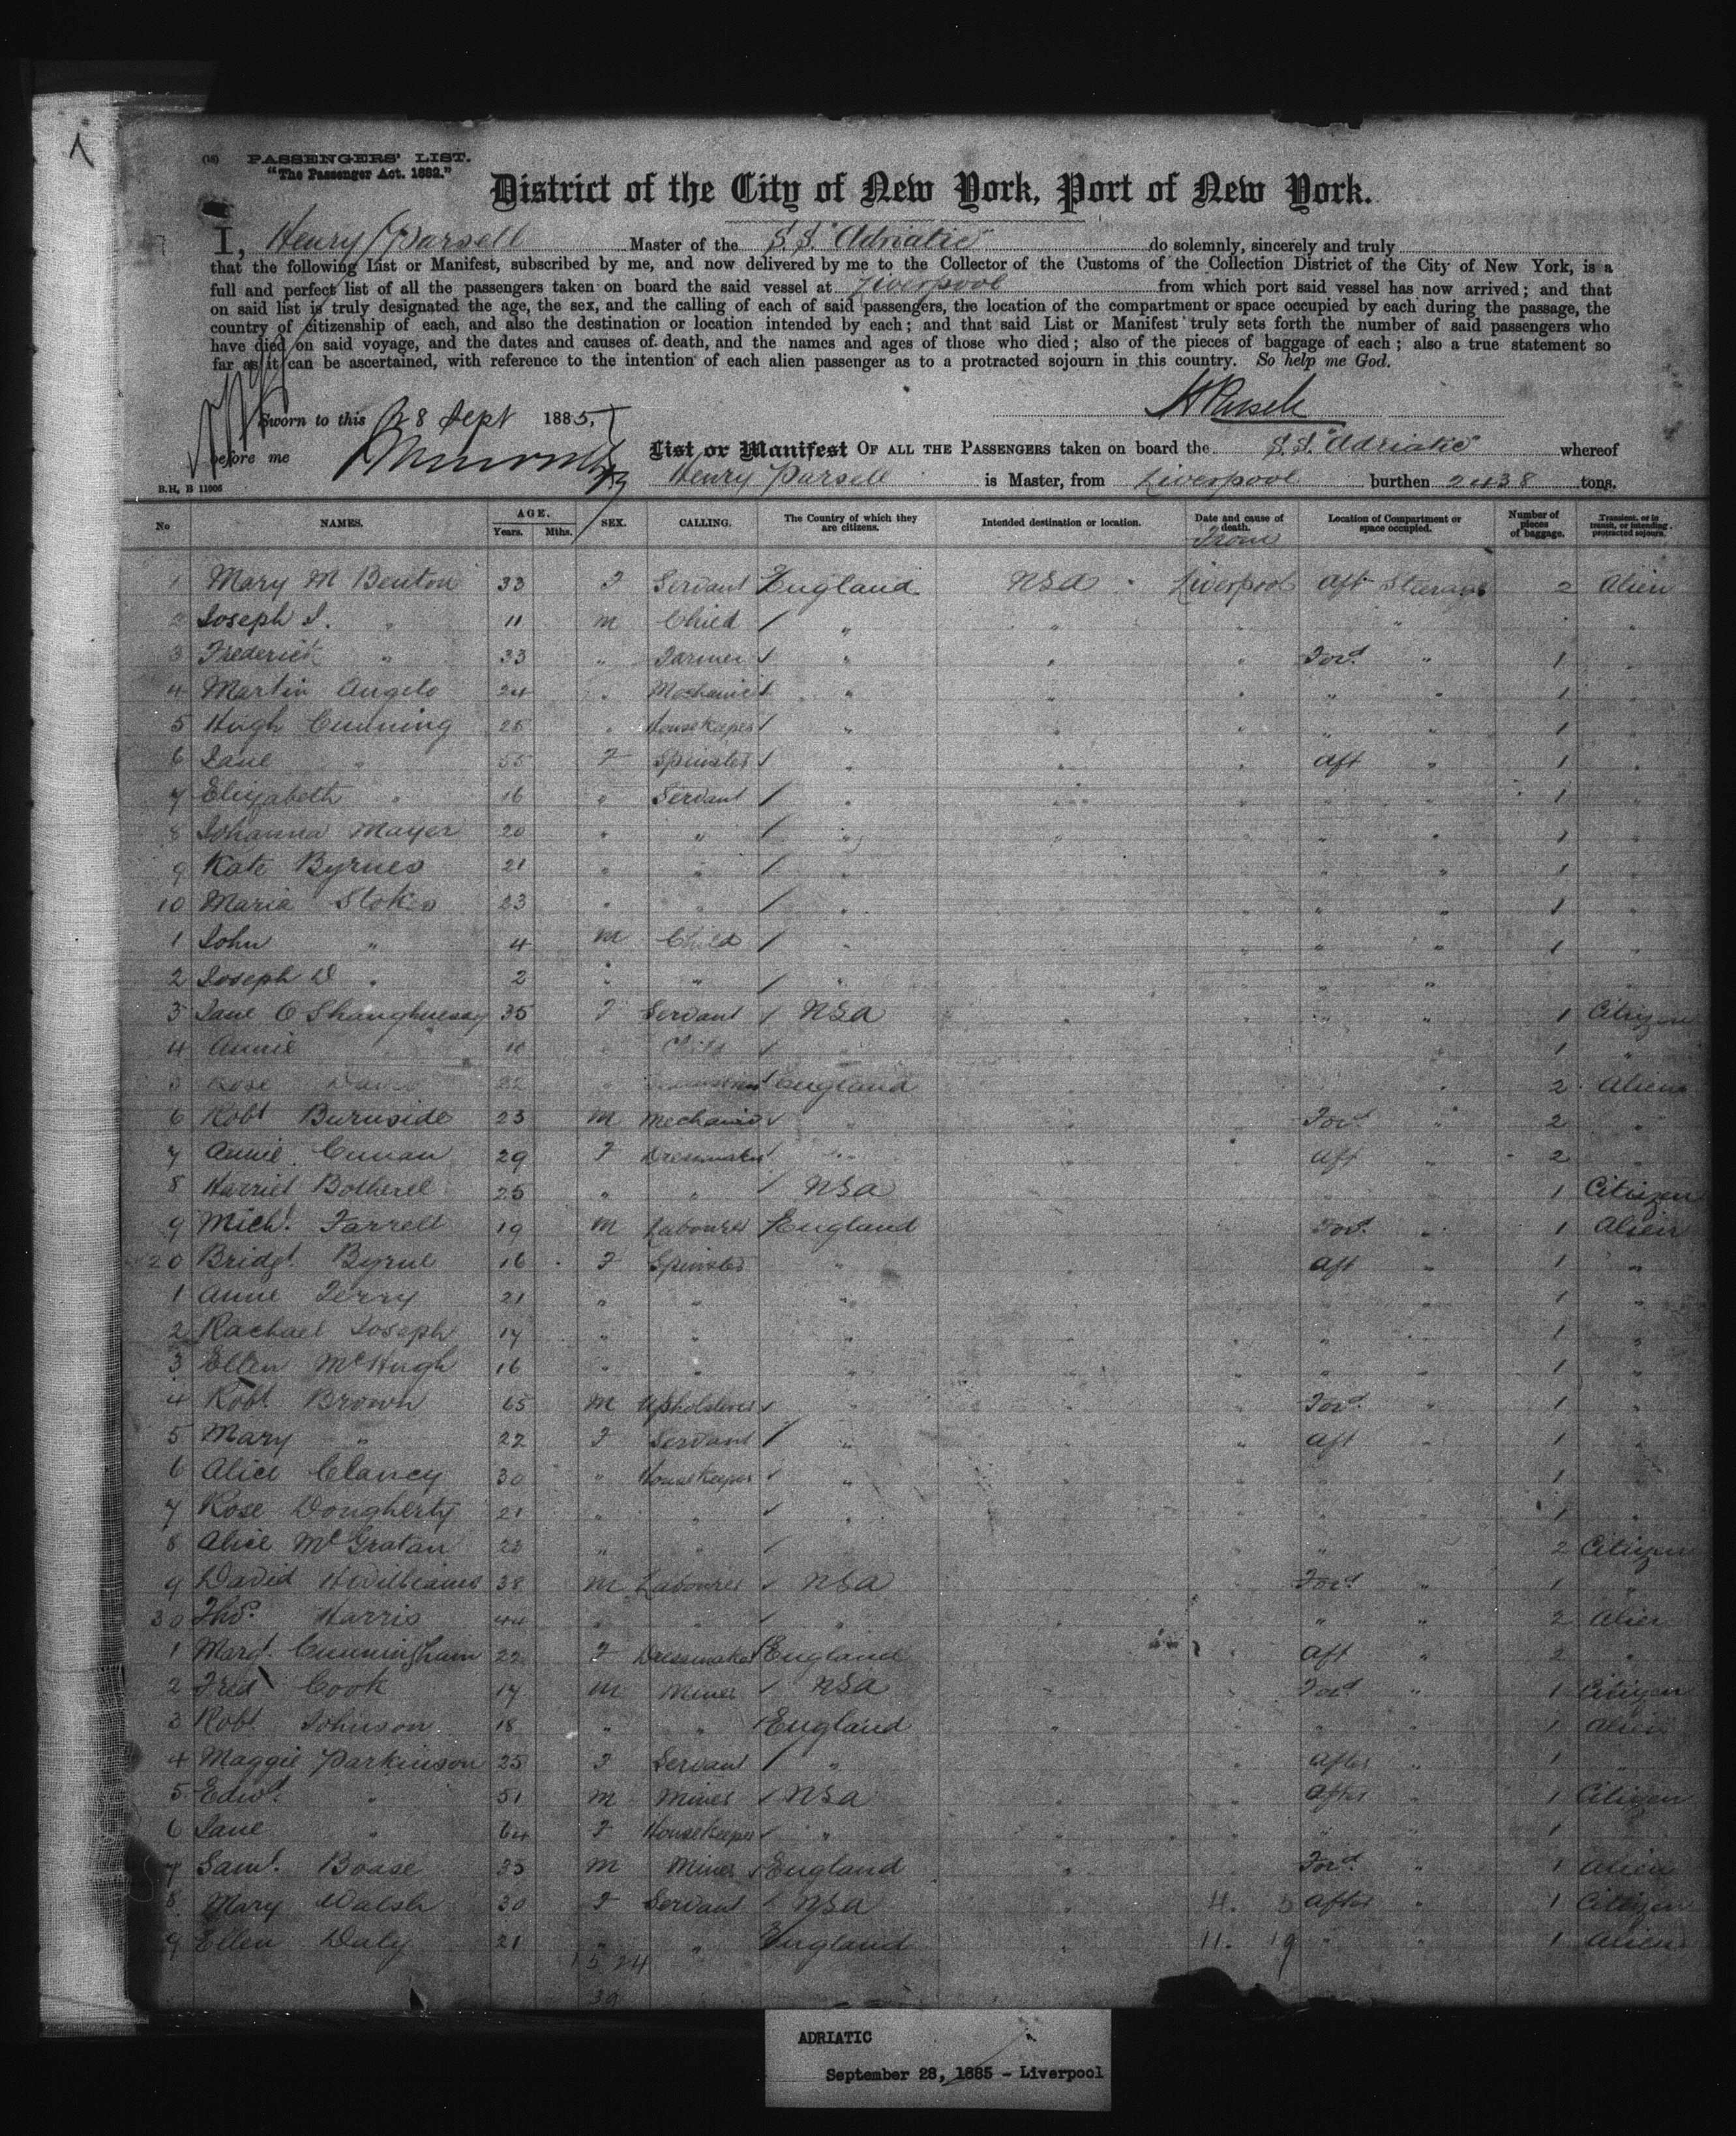 1
(18) PASSENGERS' LIST.
"The Passenger Act. 1882."
District of the City of New York, Port of New York.
I, Henry Parsell Master of the S.S. "Adriatic" do solemnly, sincerely and truly
that the following List or Manifest, subscribed by me, and now delivered by me to the Collector of the Customs of the Collection District of the City of New York, is a
full and perfect list of all the passengers taken on board the said vessel at Liverpool from which port said vessel has now arrived; and that
on said list is truly designated the age, the sex, and the calling of each of said passengers, the location of the compartment or space occupied by each during the passage, the
country of citizenship of each, and also the destination or location intended by each; and that said List or Manifest truly sets forth the number of said passengers who
have died on said voyage, and the dates and causes of death, and the names and ages of those who died; also of the pieces of baggage of each; also a true statement so
far as it can be ascertained, with reference to the intention of each alien passenger as to a protracted sojourn in this country. So help me God.
Sworn to this 28 Sept 1885,
H Parsell
before me
List or Manifest OF ALL THE PASSENGERS taken on board the S.S. "Adriatic" whereof
B.H, B 11005 Henry Parsell is Master, from Liverpool burthen 2438 tons.
No NAMES. AGE. Years. Mths. SEX. CALLING. The Country of which they are citizens. Intended destination or location. Date and cause of death. From Location of Compartment or space occupied. Number of pieces of baggage. Transient, or in transit, or intending protracted sojourn.
1 Mary M Benton 33 F Servant England USA Liverpool Aft Steerage 2 Alien
2 Joseph S. " 11 M Child / " " " " "
3 Frederick " 33 " Farmer / " " " Ford " 1 "
4 Martin Angelo 24 " Mechanic / " " " " " 1 "
5 Hugh Cunning 25 " Housekeeper / " " " " " 1 "
6 Jane " 55 F Spinster / " " " Aft " 1 "
7 Elizabeth " 16 " Servant / " " " " " 1 "
8 Johanna Mayer 20 " " / " " " " " 1 "
9 Kate Byrnes 21 " " / " " " 1 "
10 Maria Stokes 23 " " / " " " " 1 "
1 John " 4 M Child / " " " " 1 "
2 Joseph D " 2 " " / " " " "
3 Jane O Shaughnessy 35 F Servant / USA " " " 1 Citizen
4 Annie 10 " Child / " 1 "
5 Rose Davis 22 " England " 2 Alien
6 Robt Burnside 23 M Mechanic / " Ford " 2 "
7 Annie Cunan 29 F Dressmaker / " Aft " 2
8 Harriet Botherel 25 " " / USA 1 Citizen
9 Michl. Farrell 19 M Labourer England Ford " 1 Alien
20 Bridgt. Byrne 16 F Spinster " Aft " 1 "
1 Anne Terry 21 " " " 1 "
2 Rachael Joseph 17 " " " " 1 "
3 Ellen McHugh 16 " " " " 1 "
4 Robt Brown 65 M Upholsterer / " Ford " 1 "
5 Mary " 22 F Servant / " Aft " 1
6 Alice Clancy 30 " Housekeeper / " 1
7 Rose Dougherty 21 " " / " 1 "
8 Alice McGratan 22 " " / " 2 Citizen
9 David H Williams 38 M Labourer / USA Ford " 1 "
30 Thos. Harris 44 " " / " " " 2 Alien
1 Margt. Cunningham 22 F Dressmaker England Aft " 2 "
2 Fred Cook 17 M Miner / USA Ford " 1 Citizen
3 Robt Johnson 18 " " / England " " 1 Alien
4 Maggie Parkinson 25 F Servant / " After " 1
5 Edwd. " 51 M Miner / USA After " 1 Citizen
6 Jane " 64 F Housekeeper / " " " 1
7 Saml. Boase 23 M Miner / England Ford " 1 Alien
8 Mary Walsh 30 F Servant / USA 4. 5 After " 1 Citizen
9 Ellen Daly 21 " " England 11. 19 " " 1 Alien
15 24
39
ADRIATIC
September 28, 1885 - Liverpool